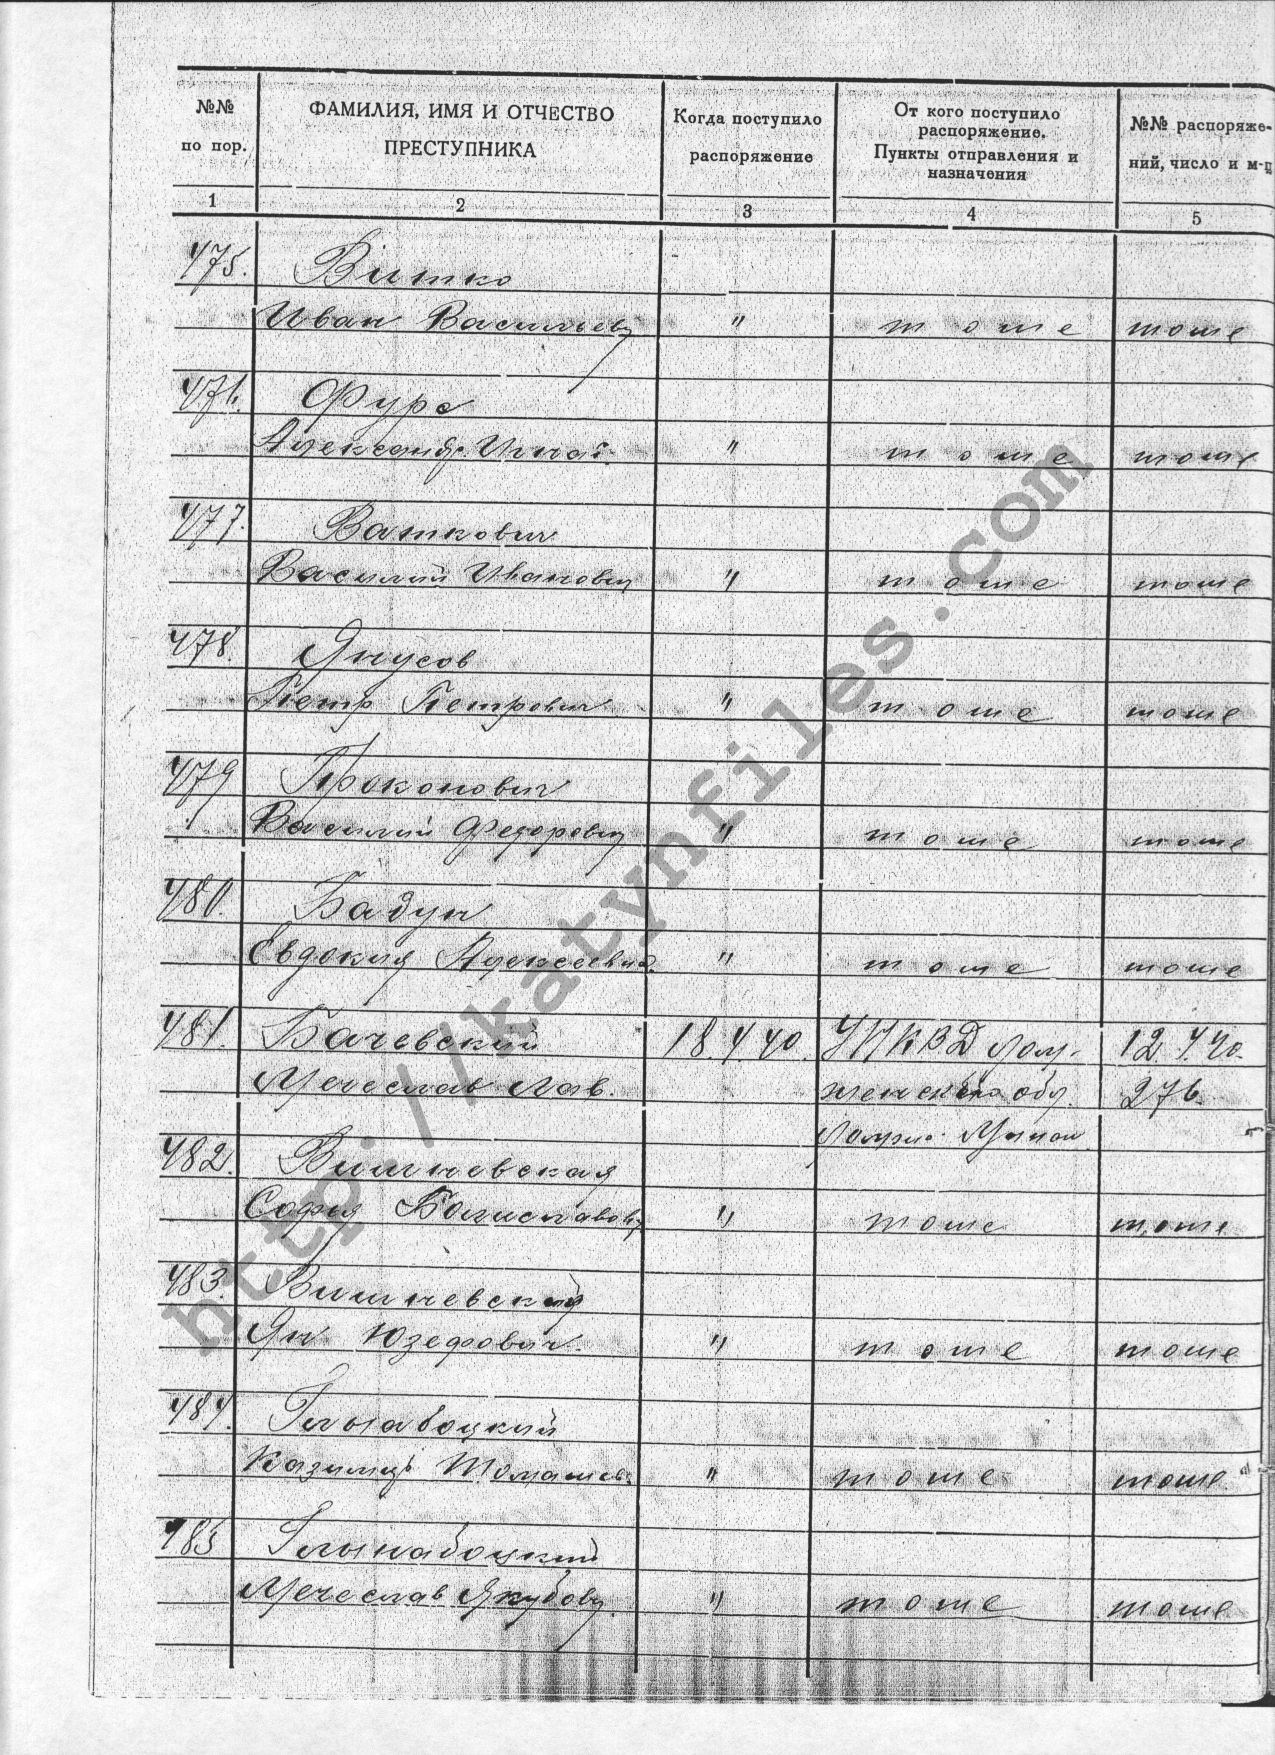 №№ по пор.
ФАМИЛИЯ, ИМЯ И ОТЧЕСТВО ПРЕСТУПНИКА
Когда поступило распоряжение
От кого поступило распоряжение. Пункты отправления и назначения
№№ распоряже-ний, число и м-ц
1 2 3 4 5
475. Витко
Иван Васильев " тоже тоже
476. Фурс
Александр Игнат. " тоже тоже
477. Ваткович
Василий Иванович " тоже тоже
478. Янусов
Петр Петрович " тоже тоже
479 Прокопович
Василий Федорович " тоже тоже
480. Бадун
Евдокия Алексеевна " тоже тоже
481. Бачевский 18.4.40. УНКВД Лом- 12.4.40.
Мечеслав Лав. обл. 276.
482. Вишневская
Софья Болиславовн " тоже тоже
483. Вишневский
Ян Юзефович. " тоже тоже
484.
Казимир Томашев. " тоже тоже
485
Мечеслав Якубович. " тоже тоже
http://katynfiles.com